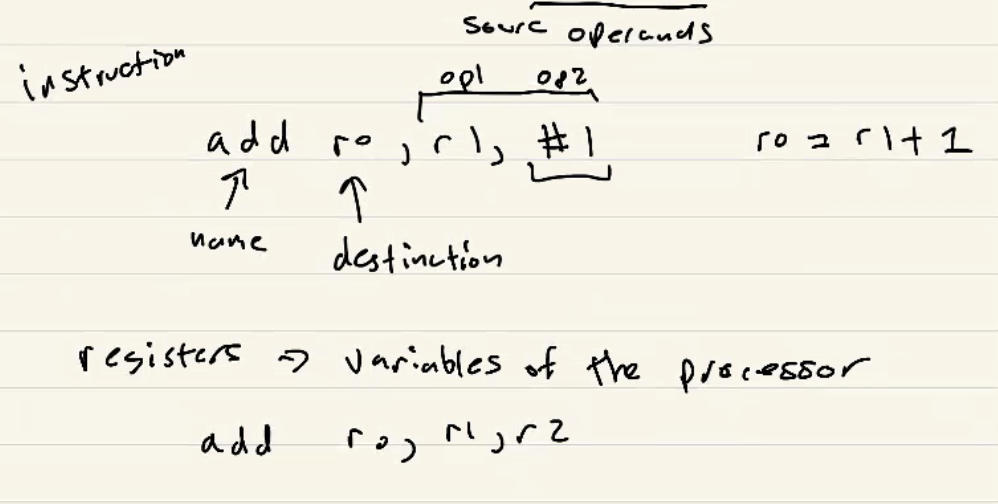 sourc operands
instruction
op1 op2
add r0, r1, #1 r0 = r1 + 1
name
destinction
registers → variables of the processor
add r0, r1, r2